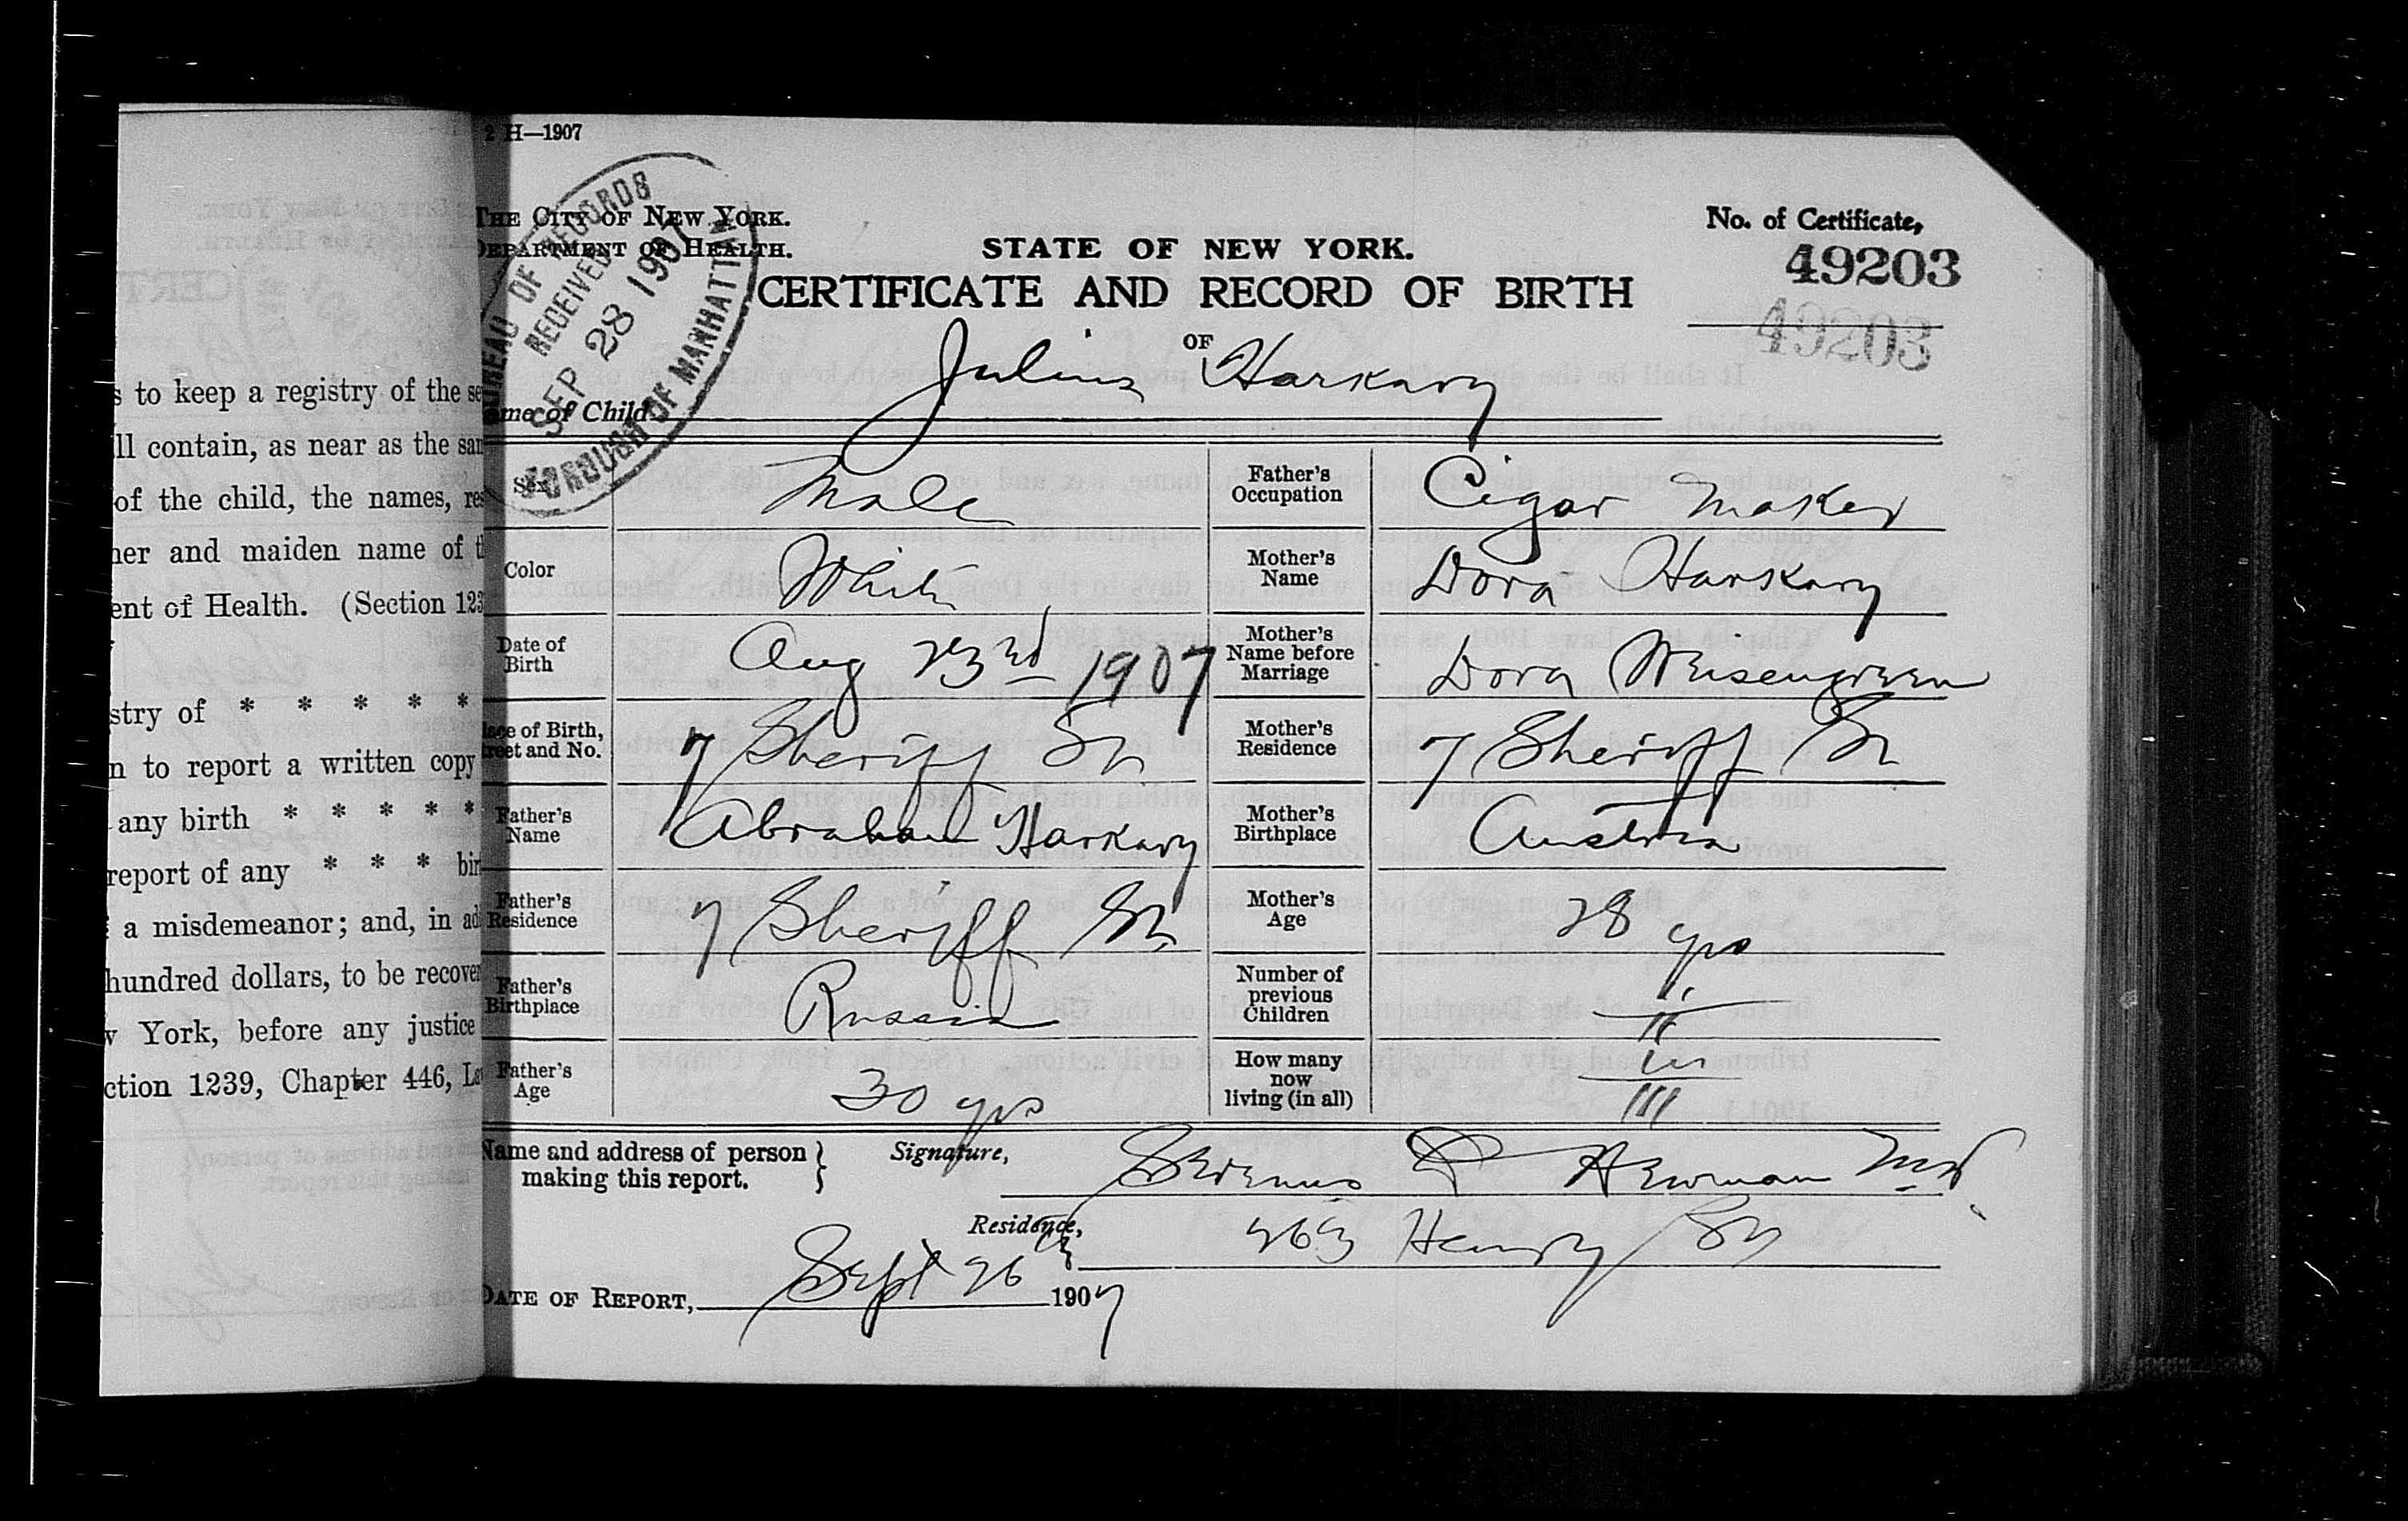 2 H—1907
THE CITY OF NEW YORK.
DEPARTMENT OF HEALTH.
BUREAU OF RECORDS
RECEIVED
SEP 28 1907
BOROUGH OF MANHATTAN
STATE OF NEW YORK.
No. of Certificate,
49203
49203
CERTIFICATE AND RECORD OF BIRTH
OF
ame of Child Julius Harkavy
Sex Male
Father's Occupation Cigar Maker
Color White
Mother's Name Dora Harkavy
Date of Birth Aug 23rd 1907
Mother's Name before Marriage Dora Weisengreen
lace of Birth, treet and No. 7 Sheriff St
Mother's Residence 7 Sheriff St
Father's Name Abraham Harkavy
Mother's Birthplace Austria
Father's Residence 7 Sheriff St
Mother's Age 28 yrs
Father's Birthplace Russia
Number of previous Children ii II
Father's Age 30 yrs
How many now living (in all) iii III
Name and address of person making this report.
Signature, P Newman MD
Residence, 263 Henry St
DATE OF REPORT, Sept 26 1907
s to keep a registry of the se
ll contain, as near as the sam
of the child, the names, res
her and maiden name of th
ent of Health. (Section 123
stry of * * * * *
n to report a written copy
any birth * * * * *
report of any * * * bir
a misdemeanor; and, in ad
hundred dollars, to be recover
w York, before any justice
ction 1239, Chapter 446, La